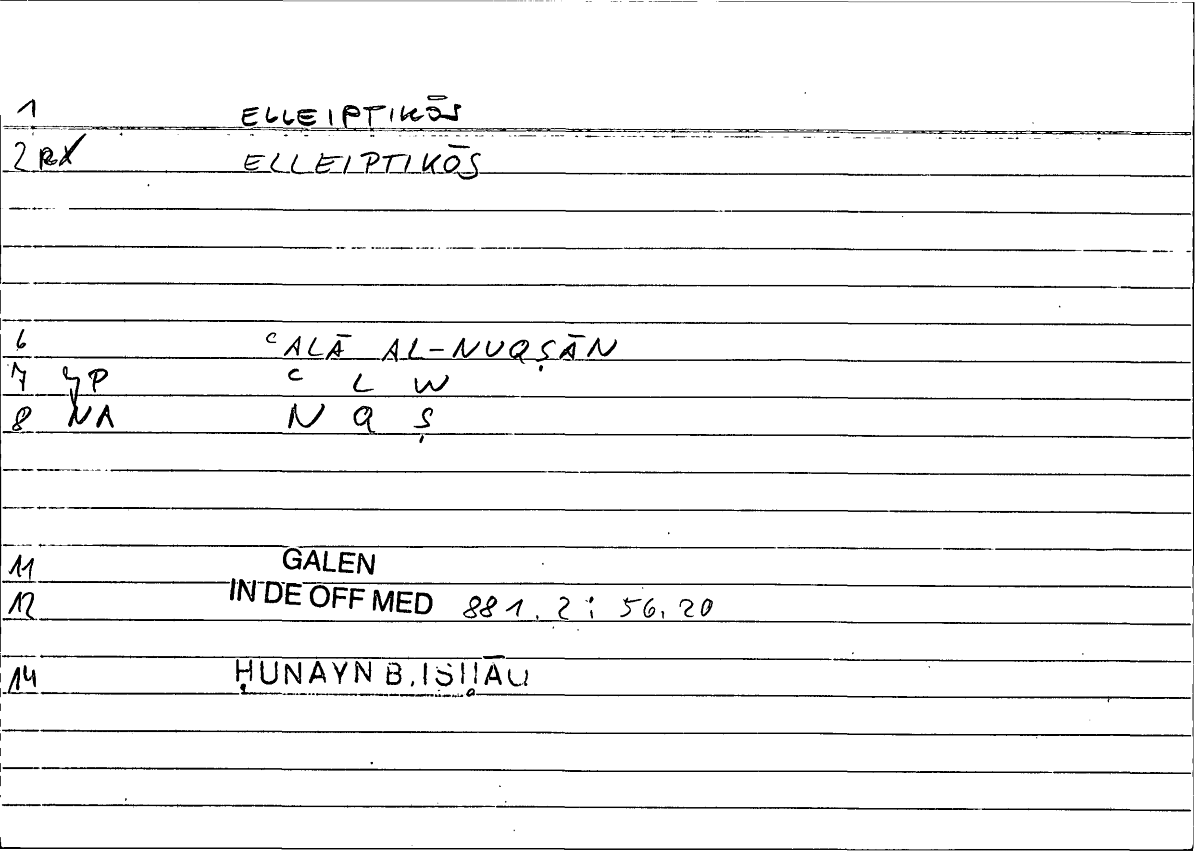 1 ELLEIPTIKŌS
2 RX ELLEIPTIKŌS
6 ᶜALĀ AL-NUQṢĀN
7 ᶜ L W
8 NA N Q Ṣ
11 GALEN
12 IN DE OFF MED 881,2; 56,20
14 ḤUNAYN B. ISḤĀQ